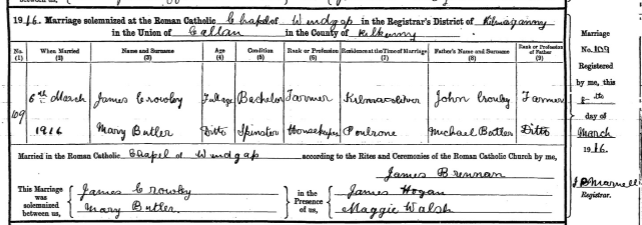 1916. Marriage solemnized at the Roman Catholic Chapel of Windgap in the Registrar's District of Kilmaganny
in the Union of Callan in the County of Kilkenny
No. (1) When Married (2) Name and Surname (3) Age (4) Condition (5) Rank or Profession (6) Residence at the Time of Marriage (7) Father's Name and Surname (8) Rank or Profession of Father (9)
6th March James Crowley Full age Bachelor Farmer Kilmacoliver John Crowley Farmer
109
1916 Mary Butler Ditto Spinster Housekeeper Michael Butler Ditto
Married in the Roman Catholic Chapel of Windgap according to the Rites and Ceremonies of the Roman Catholic Church by me,
James Brennan
This Marriage was solemnized between us, James Crowley Mary Butler. in the Presence of us, James Hogan Maggie Walsh
Marriage
No. 109
Registered
by me, this
8th
day of
March
1916.
Marnell
Registrar.